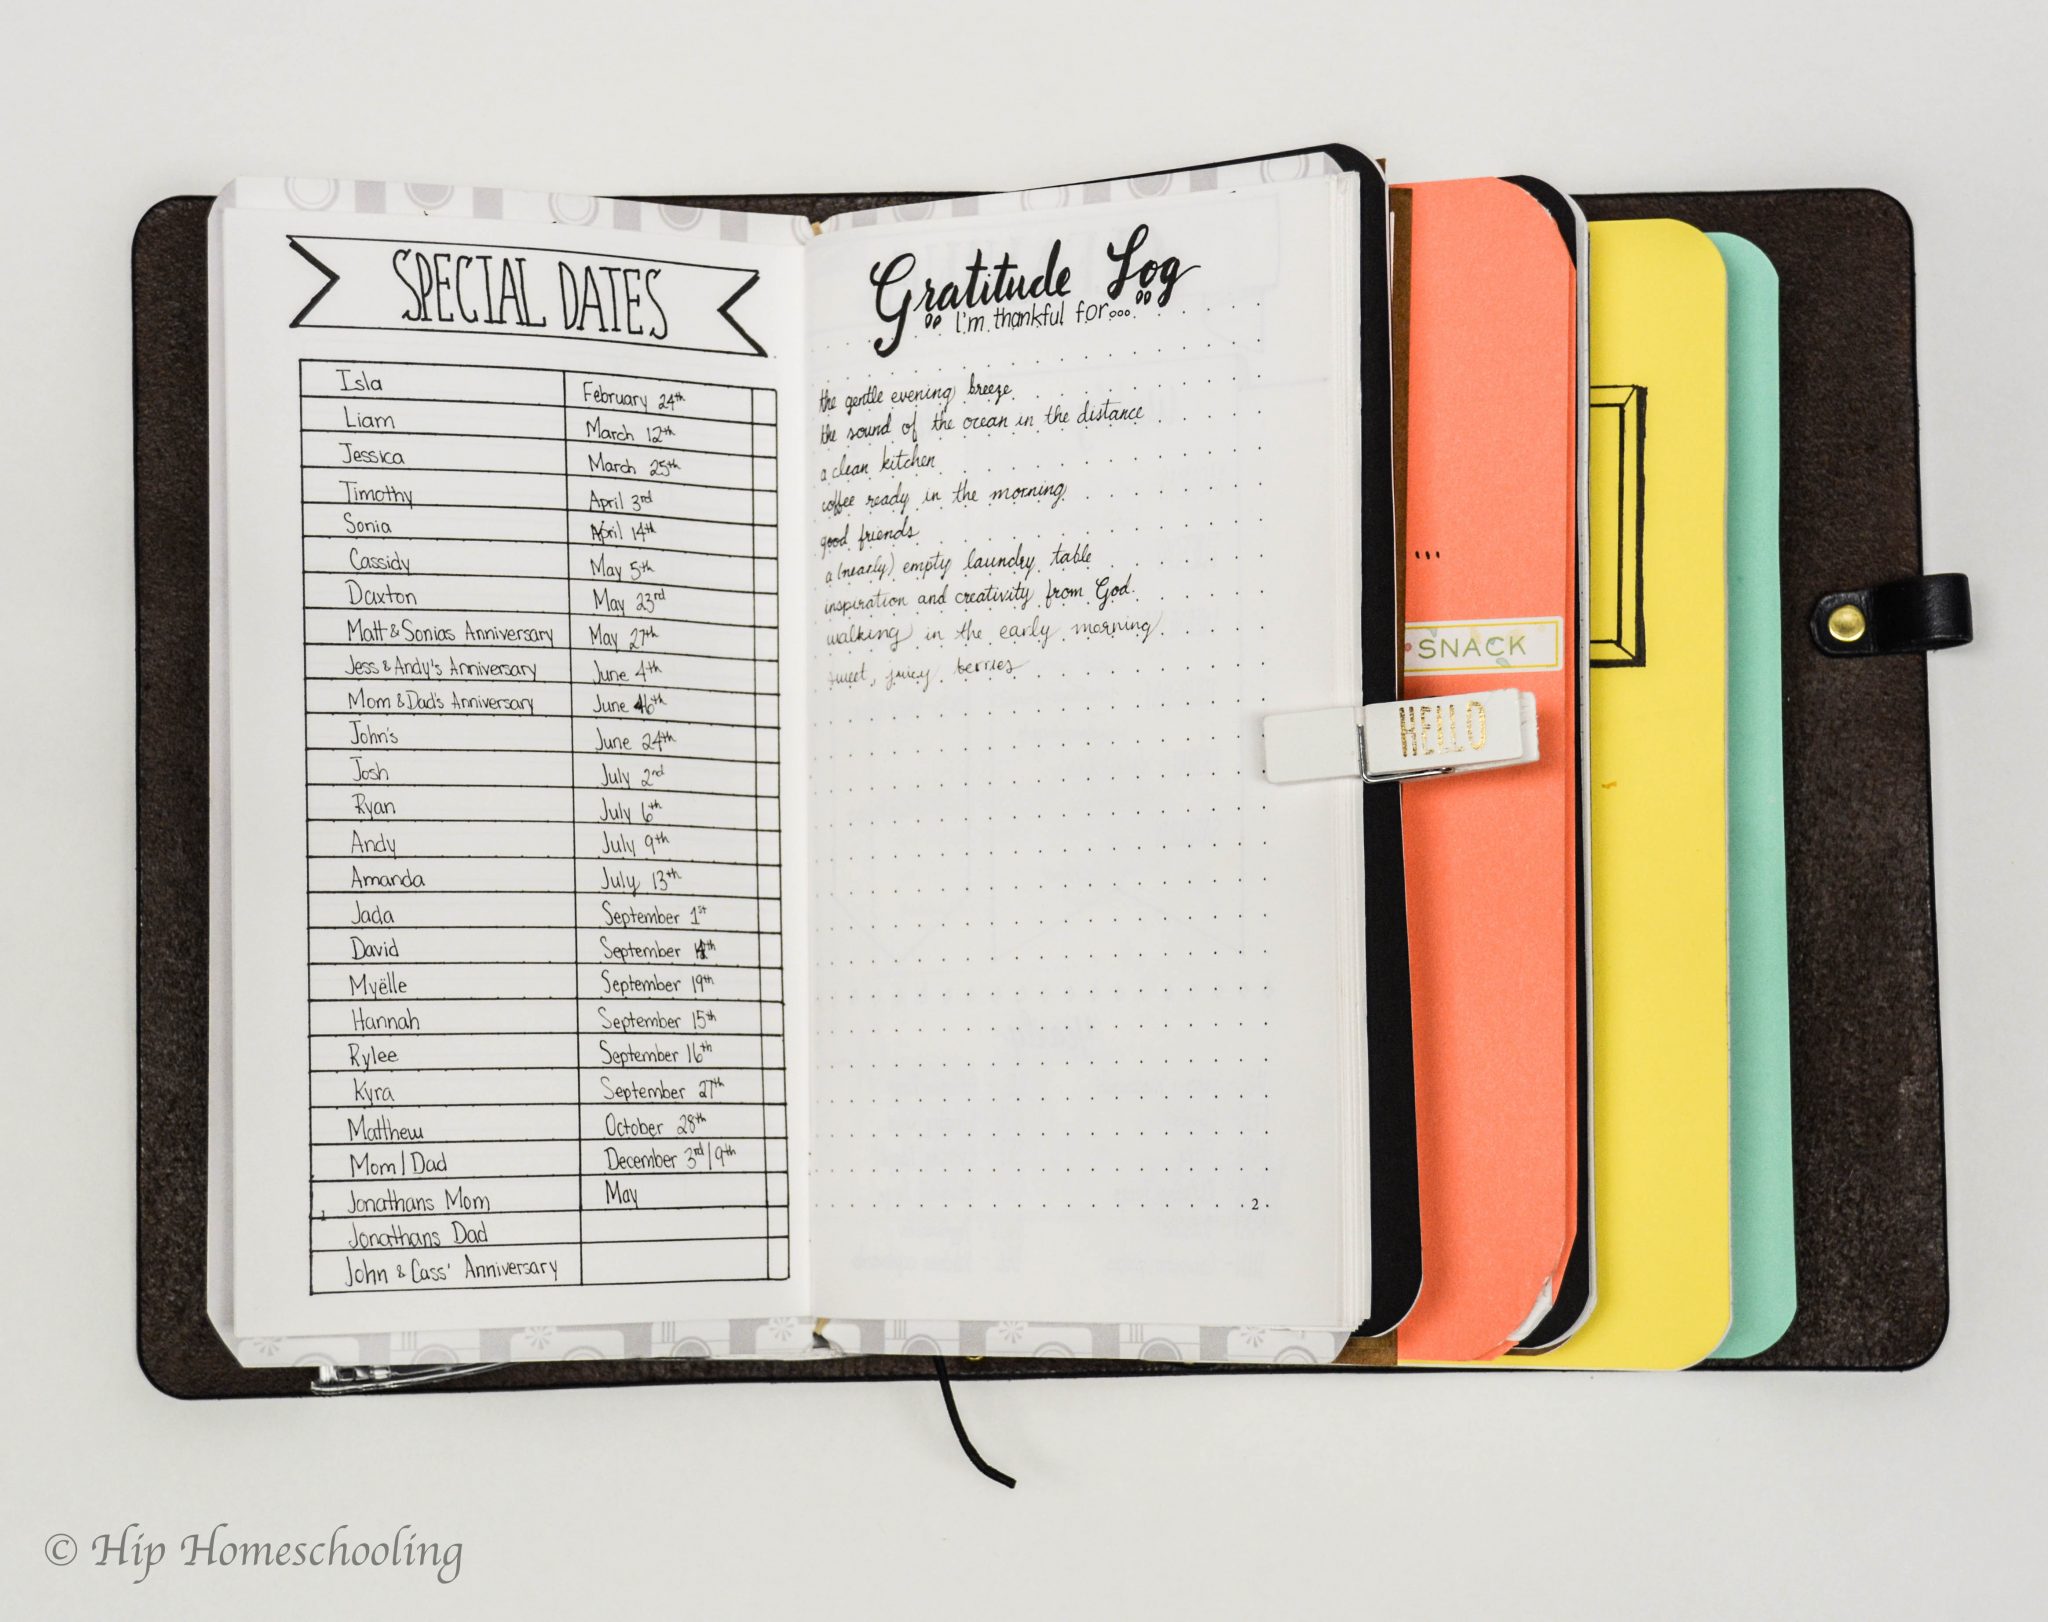 SPECIAL DATES
Isla February 24th
Liam March 12th
Jessica March 25th
Timothy April 3rd
Sonia April 14th
Cassidy May 5th
Daxton May 23rd
Matt & Sonias Anniversary May 27th
Jess & Andy's Anniversary June 4th
Mom & Dad's Anniversary June
John's June 24th
Josh July 2nd
Ryan July 6th
Andy July 9th
Amanda July 13th
Jada September 1st
David September
Myëlle September 19th
Hannah September 15th
Rylee September 16th
Kyra September 27th
Matthew October 28th
Mom/Dad December 3rd/9th
Jonathans Mom May
Jonathans Dad
John & Cass' Anniversary
1
Gratitude Log
I'm thankful for...
the gentle evening breeze
the sound of the ocean in the distance
a clean kitchen
coffee ready in the morning
good friends
a (nearly) empty laundry table
inspiration and creativity from God
walking in the early morning
sweet, juicy berries
2
...
SNACK
HELLO
© Hip Homeschooling